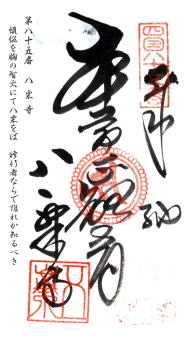 奉納
本尊聖観音
八栗寺
第八十五番　八栗寺
煩悩を胸の智火にて八栗をば　修行者ならで誰れか知るべき